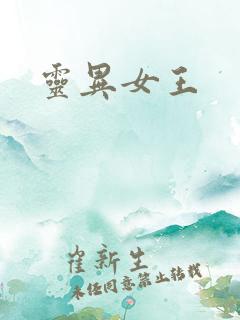 靈異女王
崔新生
未经同意禁止转载